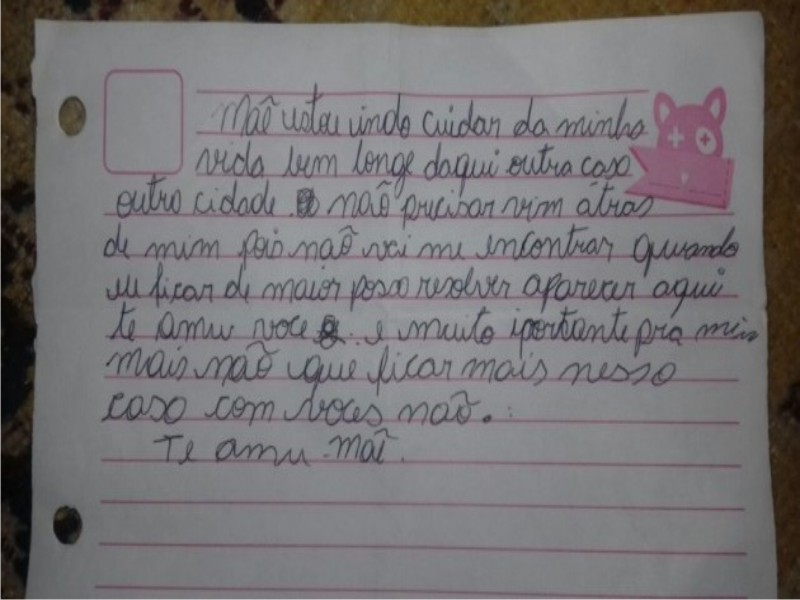 Mãe estou indo cuidar da minha
vida bem longe daqui outra casa
outra cidade não precisar vim átras
de mim pois não vai me encontrar quando
eu ficar de maior posso resolver aparecer aqui
te amu voce e muito iportante pra mim
mais não que ficar mais nessa
casa com voces não.
Te amu mãe.